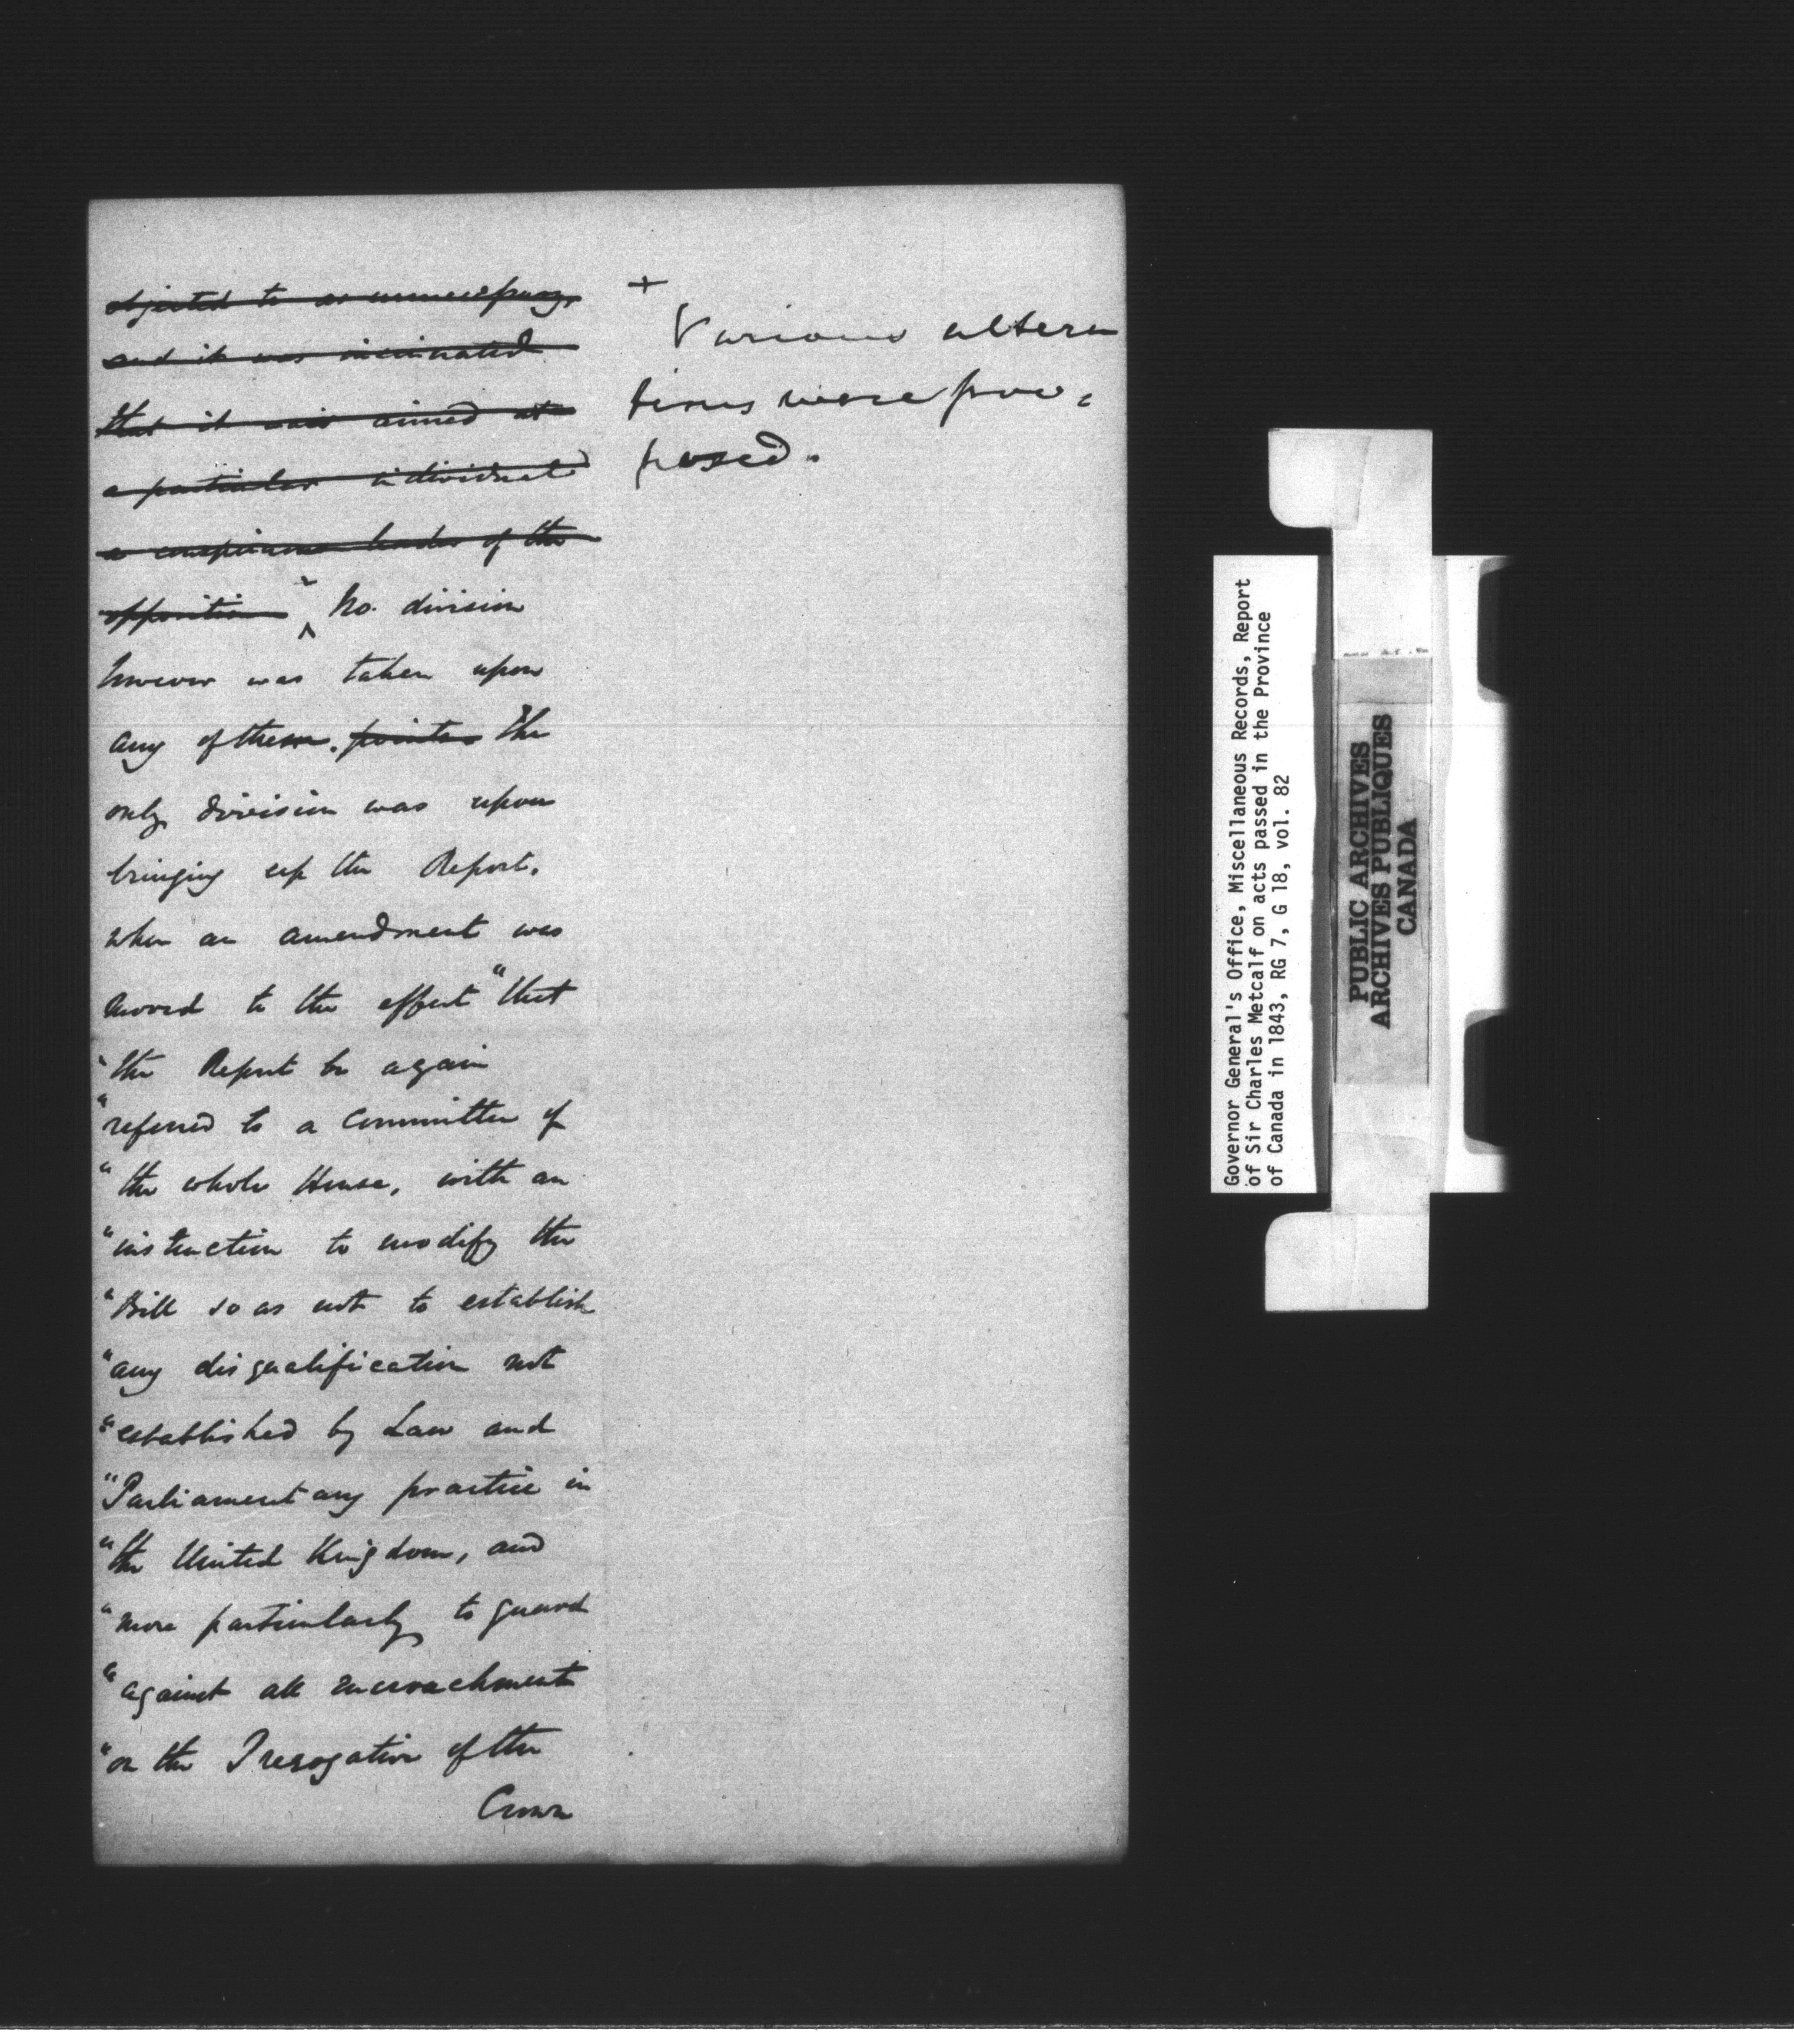 objected to as unnecessary,
and it was insinuated
that it was aimed at
a particular individual
a conspicuous leader of the
opposition + ^ No division
however was taken upon
any of them. points. The
only division was upon
bringing up the Report,
when an amendment was
moved to the effect "that
"the Report be again
"referred to a Committee of
"the whole House, with an
"instruction to modify the
"Bill so as not to establish
"any disqualification not
"established by Law and
"Parliamentary practice in
"the United Kingdom, and
"more particularly to guard
"against all encroachment
"on the Prerogative of the
Crown
+
Various altera
tions were pro-
posed.
Governor General's Office, Miscellaneous Records, Report
of Sir Charles Metcalf on acts passed in the Province
of Canada in 1843, RG 7, G 18, vol. 82
PUBLIC ARCHIVES
ARCHIVES PUBLIQUES
CANADA